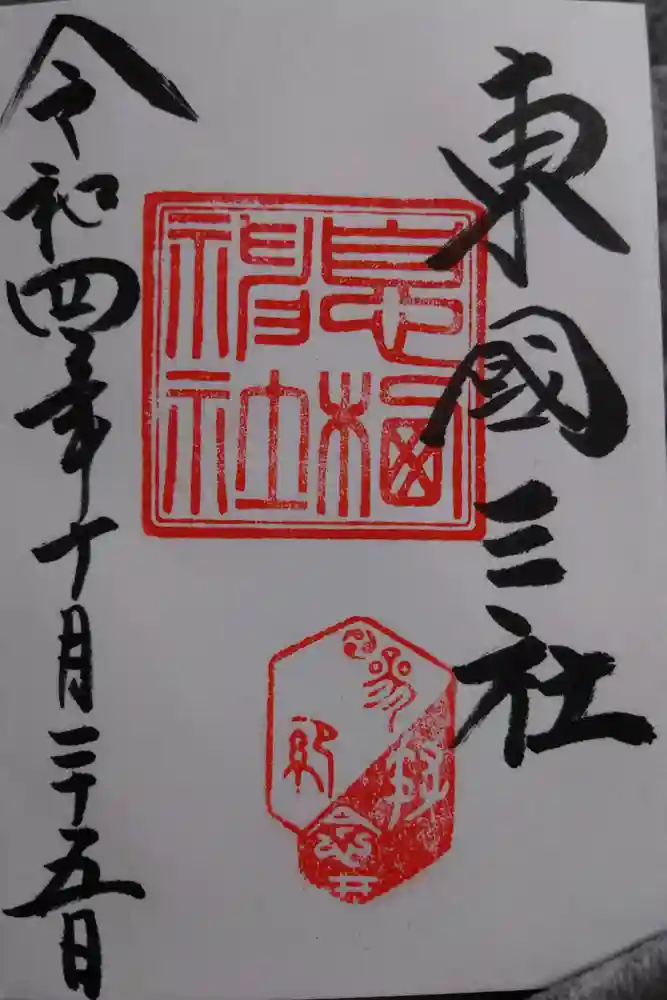 東國三社
息栖神社
参拝
令和四年十月二十五日